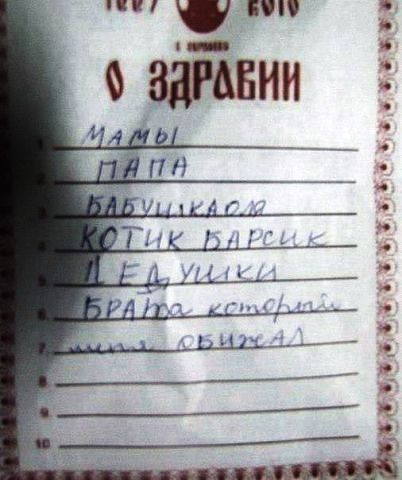 О ЗДРАВИИ
1 МАМЫ
2 ПАПА
3 БАБУШКАОЛЯ
4 КОТИК БАРСИК
5 ДЕДУШКИ
6 БРАТа который
7 меня ОБИЖАЛ
8
9
10